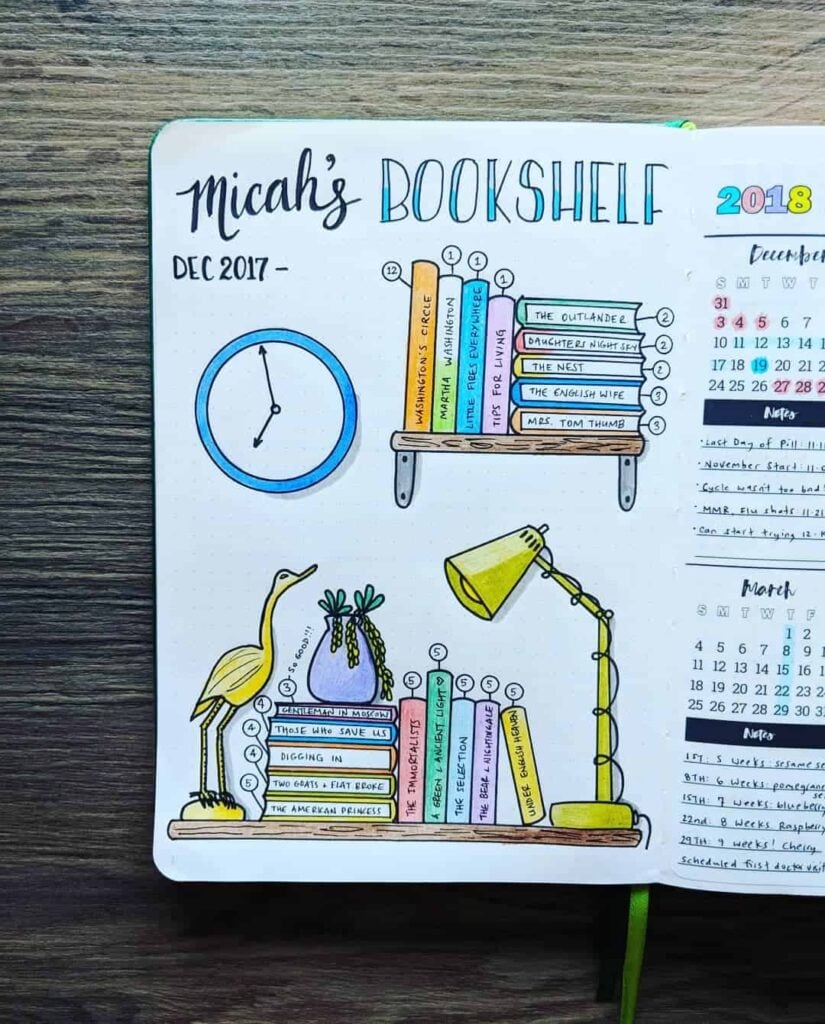 Micah's BOOKSHELF
DEC 2017 -
12
1
1
1
WASHINGTON'S CIRCLE
MARTHA WASHINGTON
LITTLE FIRES EVERYWHERE
TIPS FOR LIVING
THE OUTLANDER
2
DAUGHTERS NIGHT SKY
2
THE NEST
2
THE ENGLISH WIFE
3
MRS. TOM THUMB
3
SO GOOD!!!
3
GENTLEMAN IN MOSCOW
4
THOSE WHO SAVE US
4
DIGGING IN
4
TWO GOATS & FLAT BROKE
5
THE AMERICAN PRINCESS
5
5
5
5
5
THE IMMORTALISTS
A GREEN & ANCIENT LIGHT ♡
THE SELECTION
THE BEAR & NIGHTINGALE
UNDER ENGLISH HEAVEN
2018
December
S M T W T
31
3 4 5 6 7
10 11 12 13 14
17 18 19 20 21
24 25 26 27 28
Notes
• Last Day of Pill: 11.
• November Start: 11.
• Cycle wasn't too bad
• MMR, Flu shots 11.21
• Can start trying 12.
March
S M T W T F
1 2
4 5 6 7 8 9
11 12 13 14 15 16
18 19 20 21 22 23
25 26 27 28 29 30
Notes
1ST: 5 weeks: sesame
8TH: 6 weeks:
15TH: 7 weeks:
22nd: 8 weeks Raspberry
29TH: 9 weeks! Cherry
scheduled first doctor visit